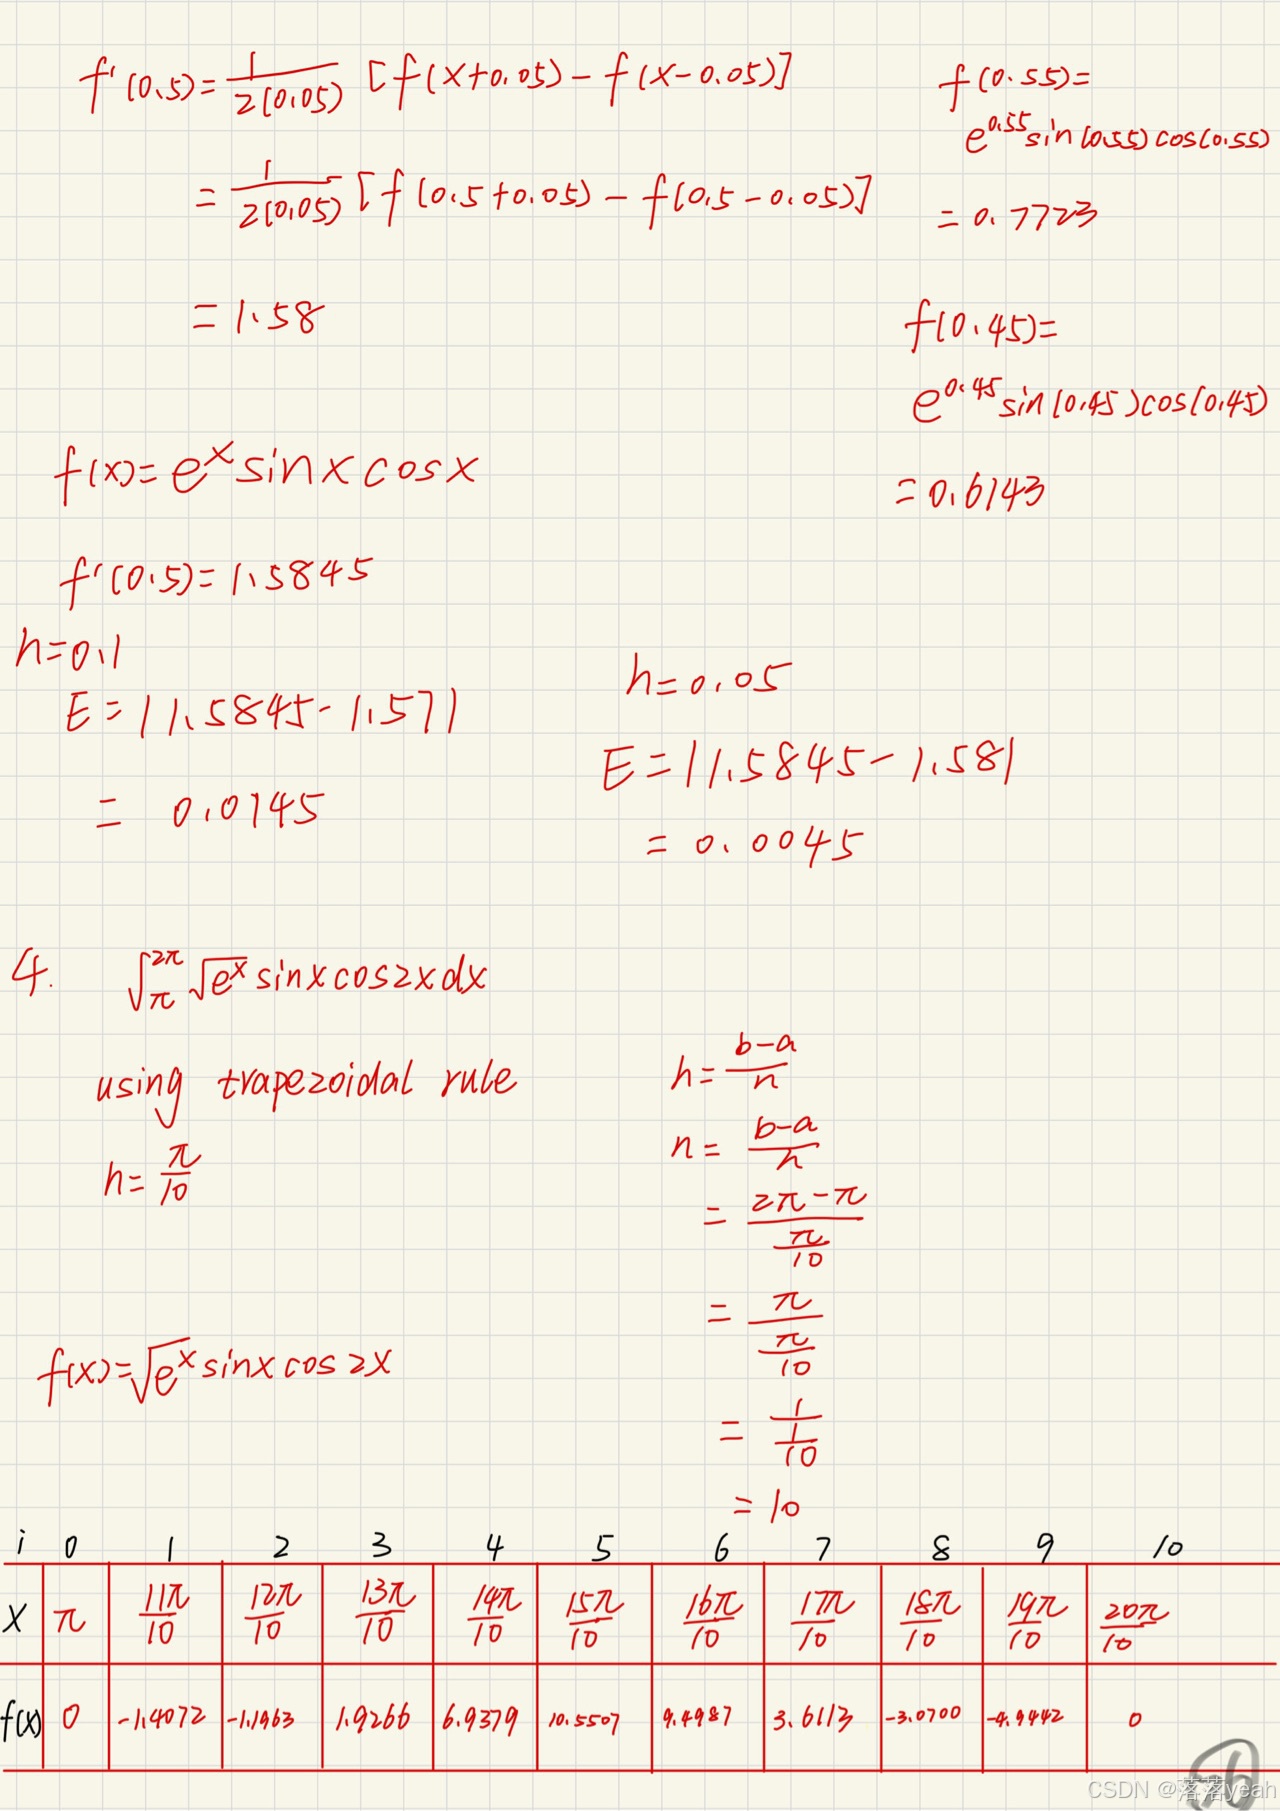 f'(0.5)=1/2(0.05) [f(x+0.05)-f(x-0.05)]
=1/2(0.05) [f(0.5+0.05)-f(0.5-0.05)]
=1.58
f(0.55)=
e^0.55 sin(0.55)cos(0.55)
=0.7723
f(0.45)=
e^0.45 sin(0.45)cos(0.45)
=0.6143
f(x)=e^x sinx cosx
f'(0.5)=1.5845
h=0.1
E=|1.5845-1.57|
= 0.0145
h=0.05
E=|1.5845-1.58|
= 0.0045
4. ∫π^2π √e^x sinx cos2x dx
using trapezoidal rule
h=π/10
f(x)=√e^x sinx cos2x
h=b-a/n
n=b-a/h
=2π-π/π/10
=π/π/10
=1/1/10
=10
i 0 1 2 3 4 5 6 7 8 9 10
x π 11π/10 12π/10 13π/10 14π/10 15π/10 16π/10 17π/10 18π/10 19π/10 20π/10
f(x) 0 -1.4072 -1.1963 1.9266 6.9379 10.5507 9.4987 3.6113 -3.0700 -4.9442 0
CSDN @落落yeah